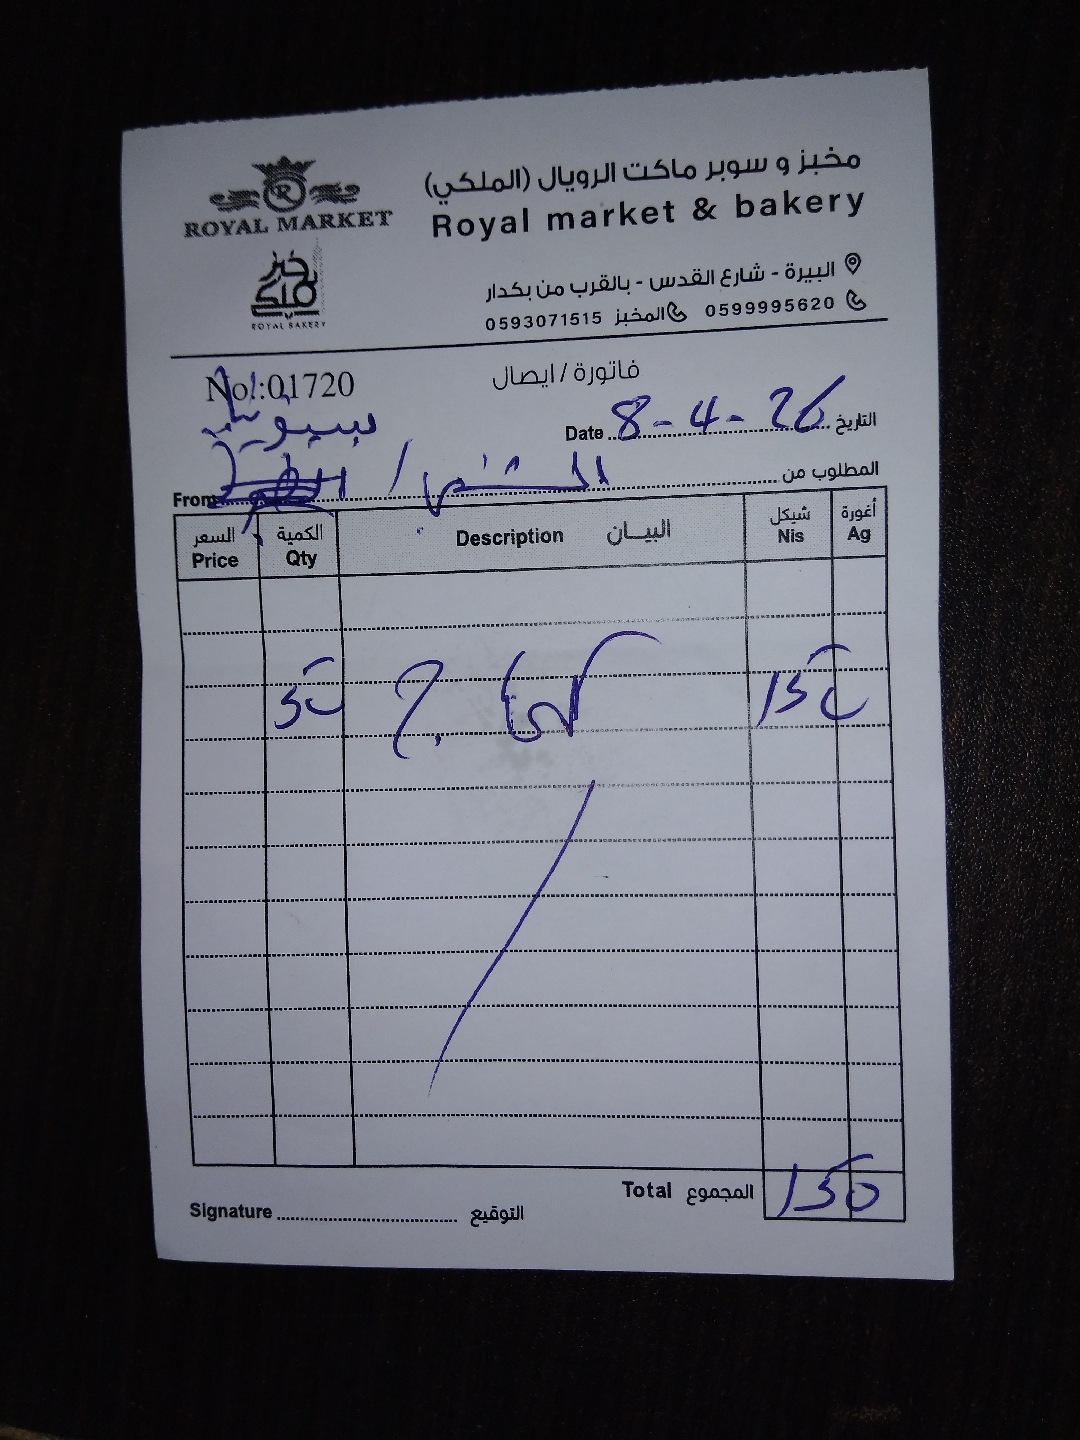 مخبز و سوبر ماكت الرويال (الملكي)
Royal market & bakery
ROYAL MARKET
خبز ملكي
ROYAL BAKERY
البيرة - شارع القدس - بالقرب من بكدار
0599995620 المخبز 0593071515
No.:01720
فاتورة / ايصال
Date 8-4-26 التاريخ
From المطلوب من
السعر الكمية البيـــان شيكل أغورة
Price Qty Description Nis Ag
50 150
Total المجموع 150
Signature التوقيع